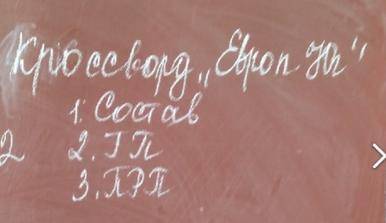 Кроссворд „Европ Юг"
1. Состав
2
2. ГП
3. ПРП